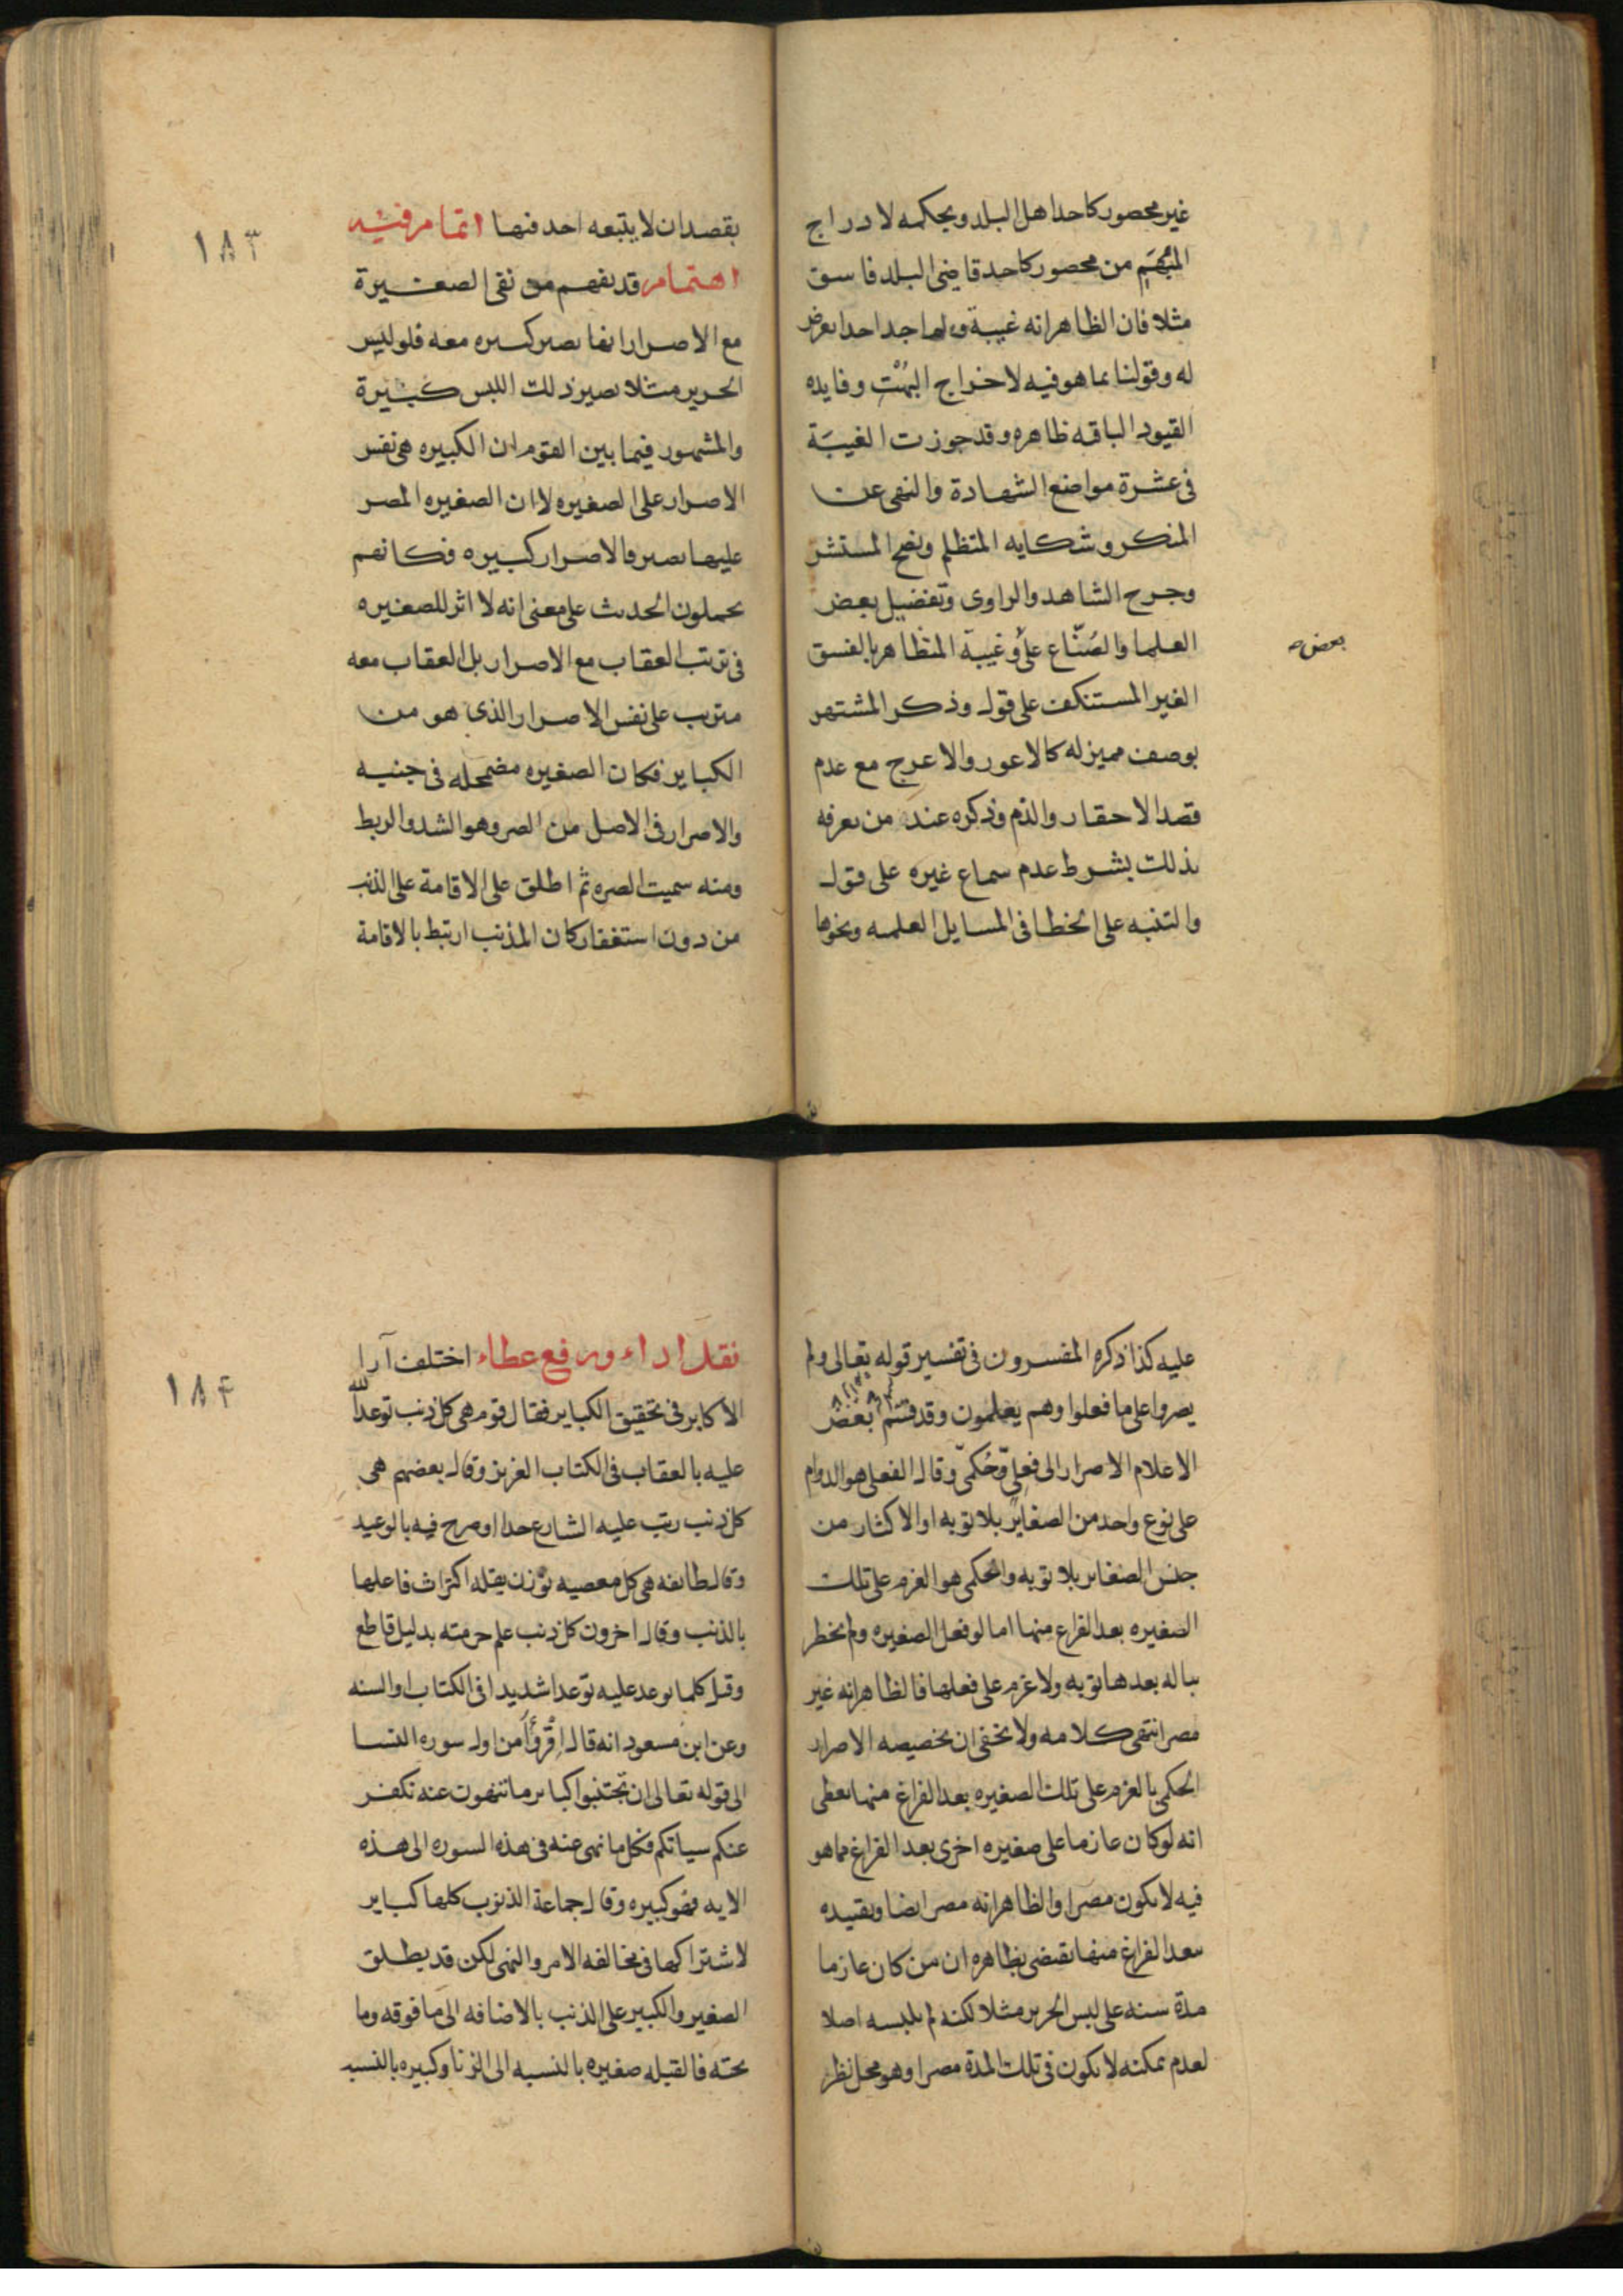 غير محصور كاحد اهل البلد وبحكمه لادراج
المبهم من محصور كاحد قاضي البلد فاسق
مثلا فان الظاهر انه غيبة ولم اجد احدا تعرض
له وقولنا بما هو فيه لاخراج البهت وفايده
القيود الباقيه ظاهره وقد جوزت الغيبة
في عشرة مواضع الشهادة والنهي عن
المنكر وشكايه المتظلم ونصح المستشير
وجرح الشاهد والراوي وتفضيل بعض
العلما والصناع على وغيبة المتظاهر بالفسق
بعض
الغير المستنكف على قول وذكر المشتهر
بوصف مميز له كالاعور والاعرج مع عدم
قصد الاحقار والذم وذكره عند من يعرفه
بذلك بشرط عدم سماع غيره على قول
والتنبه على الخطا في المسايل العلميه ونحوها
١٨٣
بقصد ان لا يتبعه احد فيها اتمام فيه
اهتمام قد يفهم من نفي الصغيرة
مع الاصرار انها تصير كبيره معه فلو لبس
الحرير مثلا يصير ذلك اللبس كبيرة
والمشهور فيما بين القوم ان الكبيره هي نفس
الاصرار على الصغيره لا ان الصغيره المصر
عليها تصير بالاصرار كبيره فكانهم
يحملون الحديث على معنى انه لا اثر للصغيره
في ترتب العقاب مع الاصرار بل العقاب معه
مترتب على نفس الاصرار الذي هو من
الكباير فكان الصغيره مضمحله في جنبه
والاصرار في الاصل من الصر وهو الشد والربط
ومنه سميت الصره ثم اطلق على الاقامة على الذنب
من دون استغفار كان المذنب ارتبط بالاقامة
عليه كذا ذكره المفسرون في تفسير قوله تعالى ولم
يصروا على ما فعلوا وهم يعلمون وقد قسم بعض
الاعلام الاصرار الى فعلي وحكمي وقال الفعلي هو الدوام
على نوع واحد من الصغاير بلا توبه او الاكثار من
جنس الصغاير بلا توبه والحكمي هو العزم على تلك
الصغيره بعد الفراغ منها اما لو فعل الصغيره ولم يخطر
بباله بعدها توبه ولا عزم على فعلها فالظاهر انه غير
مصر انتهى كلامه ولا يخفى ان تخصيصه الاصرار
الحكمي بالعزم على تلك الصغيره بعد الفراغ منها يعطي
انه لو كان عازما على صغيره اخرى بعد الفراغ مما هو
فيه لا يكون مصرا والظاهر انه مصر ايضا وتقييده
ببعد الفراغ منها يقتضي بظاهره ان من كان عازما
مدة سنه على لبس الحرير مثلا لكنه لم يلبسه اصلا
لعدم تمكنه لا يكون في تلك المدة مصرا وهو محل نظر
١٨۴
نقد اداء ورفع عطاء اختلف آرا
الاكابر في تحقيق الكباير فقال قوم هي كل ذنب توعد الله
عليه بالعقاب في الكتاب العزيز وقال بعضهم هي
كل ذنب رتب عليه الشارع حدا او صرح فيه بالوعيد
وقال طائفه هي كل معصيه تؤذن بقله اكتراث فاعلها
بالذنب وقال اخرون كل ذنب علم حرمته بدليل قاطع
وقيل كلما توعد عليه توعدا شديدا في الكتاب او السنه
وعن ابن مسعود انه قال اقرؤا من اول سوره النسا
الى قوله تعالى ان تجتنبوا كباير ما تنهون عنه نكفر
عنكم سياتكم فكل ما نهى عنه في هذه السوره الى هذه
الايه فهو كبيره وقال جماعة الذنوب كلها كباير
لاشتراكها في مخالفه الامر والنهي لكن قد يطلق
الصغير والكبير على الذنب بالاضافه الى ما فوقه وما
تحته فالقبله صغيره بالنسبه الى الزنا وكبيره بالنسبه